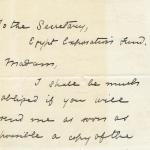 To the Secretary,
Egypt Exploration Fund.
Madam,
I shall be much
obliged if you will
send me as soon as
possible a copy of the